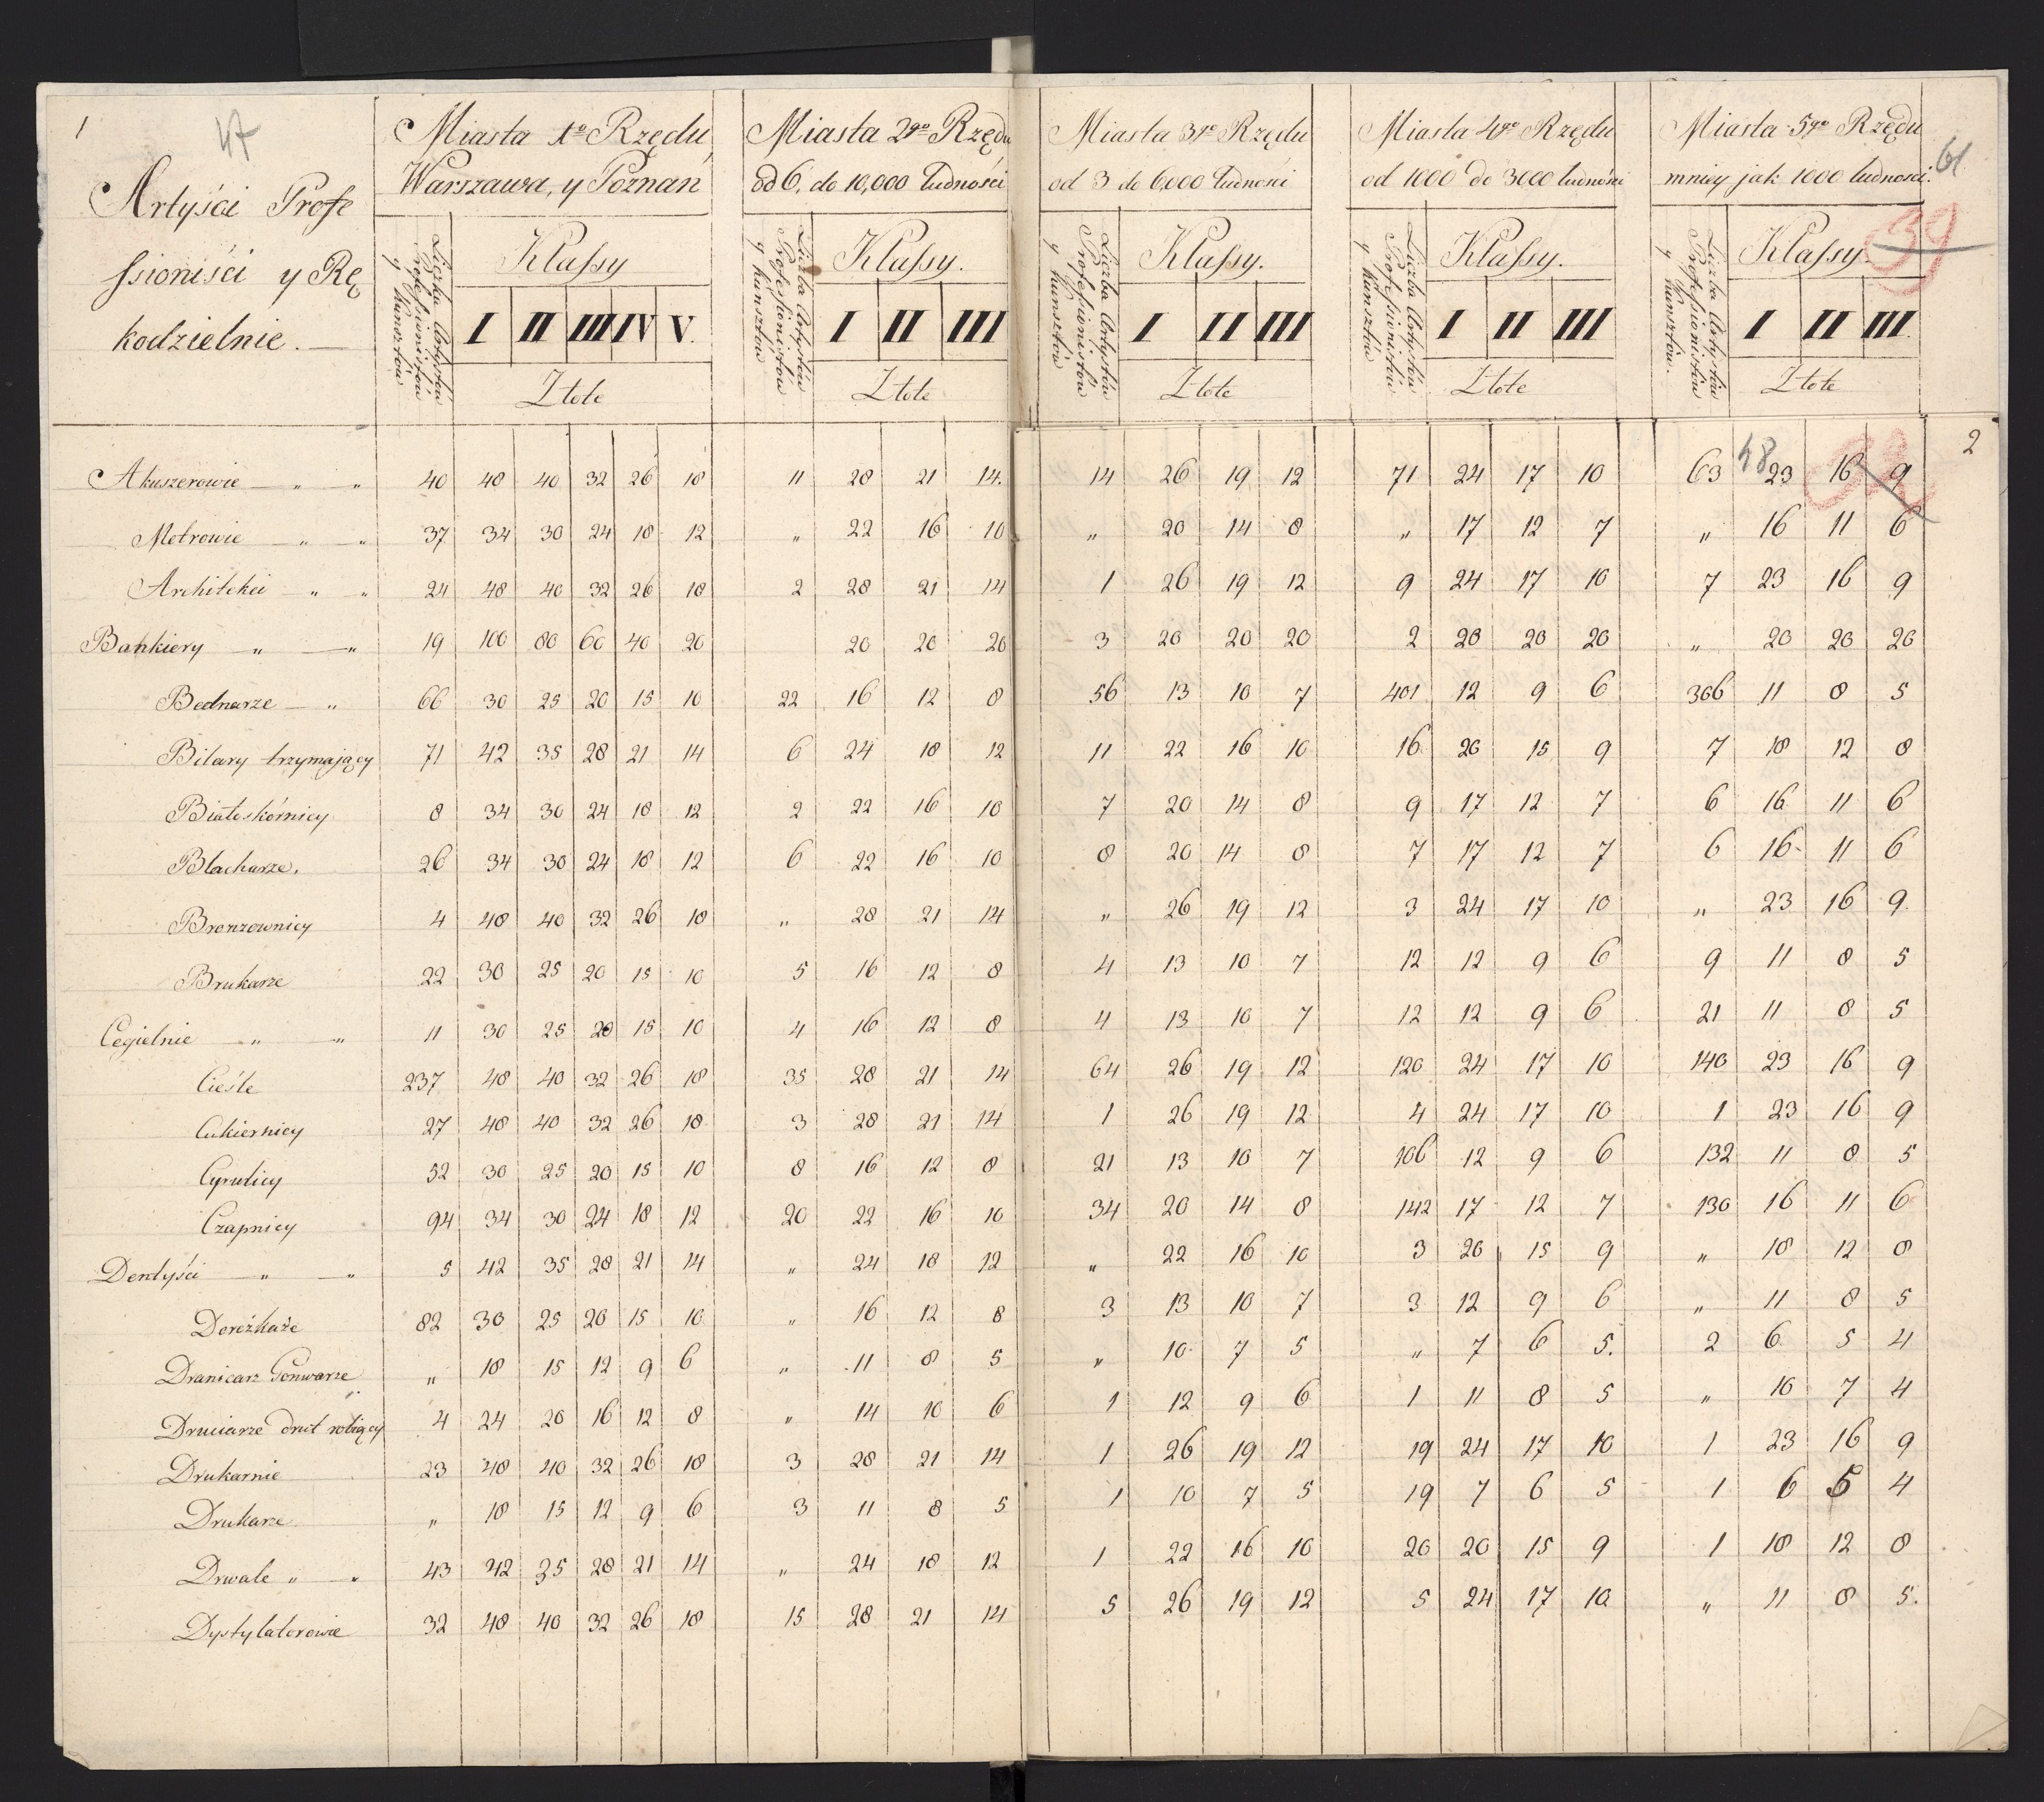 1
47
Artyści Profe
ssioniści y Rę
kodzielnie. —
Miasta 1o Rzędu
Warszawa, y Poznań
Liczba Artystów
Professionistów
y Kunsztów
Klassy
I II III IV V.
Złote
Miasta 2go Rzędu
od 6, do 10,000 ludności
Liczba Artystów
Professionistów
y Kunsztów
Klassy.
I II III
Złote
Miasta 3go Rzędu
od 3 do 6,000 ludności
Liczba Artystów
Professionistów
y Kunsztów
Klassy.
I II III
Złote
Miasta 4go Rzędu
od 1000 do 3000 ludności
Liczba Artystów
Professionistów
y Kunsztów
Klassy.
I II III
Złote
Miasta 5go Rzędu
mniey jak 1000 ludności.
Liczba Artystów
Professionistów
y Kunsztów.
Klassy.
I II III.
Złote
61
39
2
48
Akuszerowie — „ — „ 40 48 40 32 26 18 11 28 21 14. 14 26 19 12 71 24 17 10 63 23 16 9
Metrowie — „ — „ 37 34 30 24 18 12 „ 22 16 10 „ 20 14 8 „ 17 12 7 „ 16 11 6
Architekci — „ — „ 24 48 40 32 26 18 2 28 21 14 1 26 19 12 9 24 17 10 7 23 16 9
Bankiery — „ — „ 19 100 80 60 40 20 20 20 20 3 20 20 20 2 20 20 20 „ 20 20 20
Bednarze — „ 66 30 25 20 15 10 22 16 12 8 56 13 10 7 401 12 9 6 366 11 8 5
Bilary trzymający 71 42 35 28 21 14 6 24 18 12 11 22 16 10 16 20 15 9 7 18 12 8
Białoskórnicy 8 34 30 24 18 12 2 22 16 10 7 20 14 8 9 17 12 7 6 16 11 6
Blacharze. 26 34 30 24 18 12 6 22 16 10 8 20 14 8 7 17 12 7 6 16 11 6
Bronzownicy 4 48 40 32 26 18 „ 28 21 14 „ 26 19 12 3 24 17 10 „ 23 16 9.
Brukarze 22 30 25 20 15 10 5 16 12 8 4 13 10 7 12 12 9 6 9 11 8 5
Cegielnie — „ — „ 11 30 25 20 15 10 4 16 12 8 4 13 10 7 12 12 9 6 21 11 8 5
Cieśle 237 48 40 32 26 18 35 28 21 14 64 26 19 12 120 24 17 10 140 23 16 9
Cukiernicy 27 48 40 32 26 18 3 28 21 14 1 26 19 12 4 24 17 10 1 23 16 9
Cyrulicy 52 30 25 20 15 10 8 16 12 8 21 13 10 7 106 12 9 6 132 11 8 5
Czapnicy 94 34 30 24 18 12 20 22 16 10 34 20 14 8 142 17 12 7 130 16 11 6
Dentyści — „ — „ 5 42 35 28 21 14 „ 24 18 12 „ 22 16 10 3 20 15 9 „ 18 12 8
Dorożkaże 82 30 25 20 15 10 „ 16 12 8 3 13 10 7 3 12 9 6 „ 11 8 5
Dranicarz Gonwarze „ 18 15 12 9 6 „ 11 8 5 „ 10 7 5 „ 7 6 5. 2 6 5 4
Druciarze drut robiący 4 24 20 16 12 8 „ 14 10 6 1 12 9 6 1 11 8 5 „ 10 7 4
Drukarnie 23 48 40 32 26 18 3 28 21 14 1 26 19 12 19 24 17 10 1 23 16 9
Drukarze „ 18 15 12 9 6 3 11 8 5 1 10 7 5 19 7 6 5 1 6 5 4
Drwale „ — „ 43 42 35 28 21 14 „ 24 18 12 1 22 16 10 20 20 15 9 1 18 12 8
Dystylatorowie 32 48 40 32 26 18 15 28 21 14 5 26 19 12 5 24 17 10 „ 11 8 5.